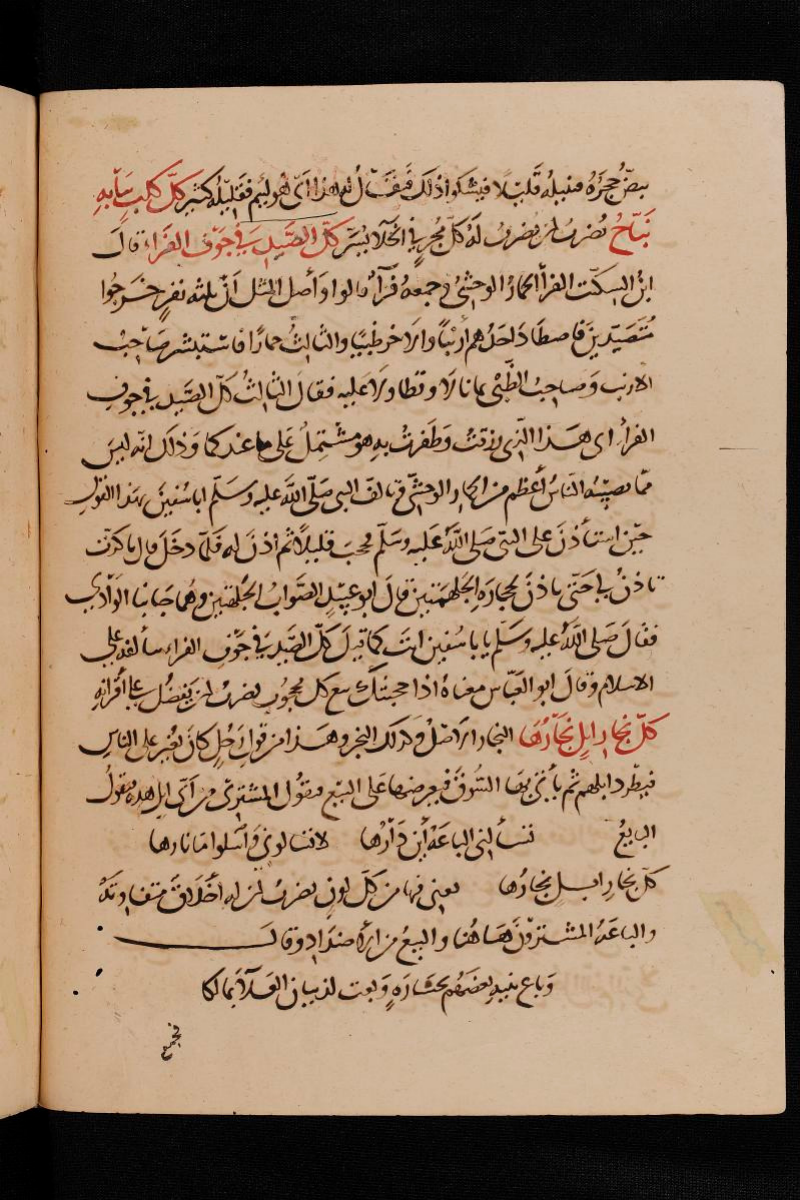 يبض حجره منيله قليلا فيشكو اذلك فيقال له هذا اى هو لئيم فقليله كثير كل كلب ببابه
نباح يضرب لمن يضرب له كل مجر في الخلا يسر كل الصيد في جوف الفراء قال
ابن السكيت الفرأ الحمار الوحشي وجمعه فرآء قالوا وأصل المثل أن ثلثه نفر خرجوا
متصيدين فاصطاد احدهم ارنبا والاخر ظبيا والثالث حمارا فاستبشر صاحب
الارنب وصاحب الظبي بما نالا وتطاولا عليه فقال الثالث كل الصيد في جوف
الفراء اى هذا الذى رزقت وظفرت به هو مشتمل على ما عندكما وذلك انه ليس
مما يصيبه الناس أعظم من الحمار الوحشي وتالف النبي صلى الله عليه وسلم ابا سفين بهذا القول
حين استأذن على النبي صلى الله عليه وسلم فحجب قليلا ثم أذن له فلما دخل قال ما كدت
تاذن لي حتى تاذن لحجارة الجلهمتين قال ابو عبيد الصواب الجلهتين وهما جانبا الوادي
فقال صلى الله عليه وسلم يا با سفين انت كما قيل كل الصيد في جوف الفراء يتألفه على
الاسلام وقال ابو العباس معناه اذا حجبتك قنع كل محجوب يضرب لمن يفضل على اقرانه
كل نجار ابل نجارها النجار الاصل وكذلك النجر وهذا من قول رجل كان يغير على الناس
فيطرد ابلهم ثم يأتي بها السوق فيعرضها على البيع فيقول المشترى من أى ابل هذه فيقول
البايع تسألني الباعة أين دارها لا تسالوني وأسلوا ما نارها
كل نجار ابل نجارها يعني فيها من كل لون يضرب لمن له أخلاق متفاوتة
والباعة المشترون هاهنا والبيع من الاضداد وقال
وباع بنيه بعضهم بخشارة وبعت لذبيان العلآء بمالكا
فجمع